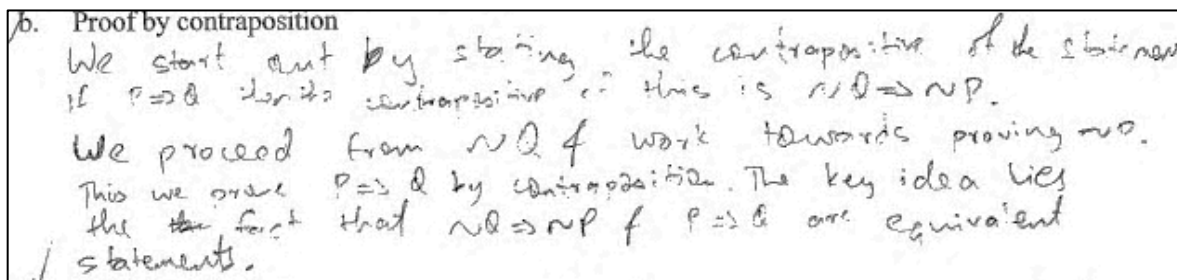 b. Proof by contraposition
We start out by stating the contrapositive of the statemen
if P=>Q then its contrapositive of this is ~Q=>~P.
We proceed from ~Q & work towards proving ~P.
This we prove P=>Q by contraposition. The key idea lies
the fact that ~Q=>~P & P=>Q are equivalent
statements.